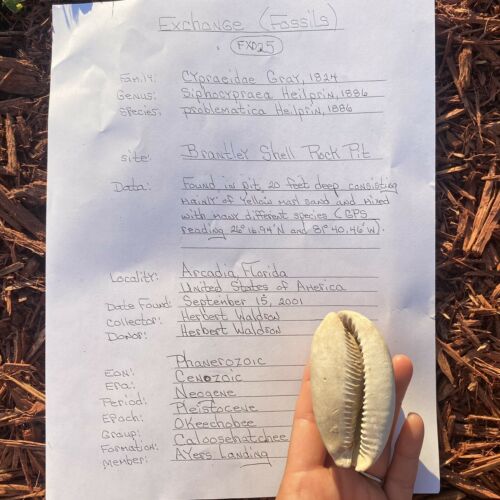 Exchange (Fossils)
FX025
Family: Cypraeidae Gray, 1824
Genus: Siphocypraea Heilprin, 1886
Species: problematica Heilprin, 1886
Site: Brantley Shell Rock Pit
Data: Found in pit, 20 feet deep consisting
mainly of yellow marl sand and mixed
with many different species (GPS
reading 26° 16.94'N and 81° 40.46'W).
Locality: Arcadia, Florida
United States of America
Date Found: September 15, 2001
Collector: Herbert Waldron
Donor: Herbert Waldron
Eon: Phanerozoic
Era: Cenozoic
Period: Neogene
Epoch: Pleistocene
Group: Okeechobee
Formation: Caloosahatchee
Member: Ayers Landing